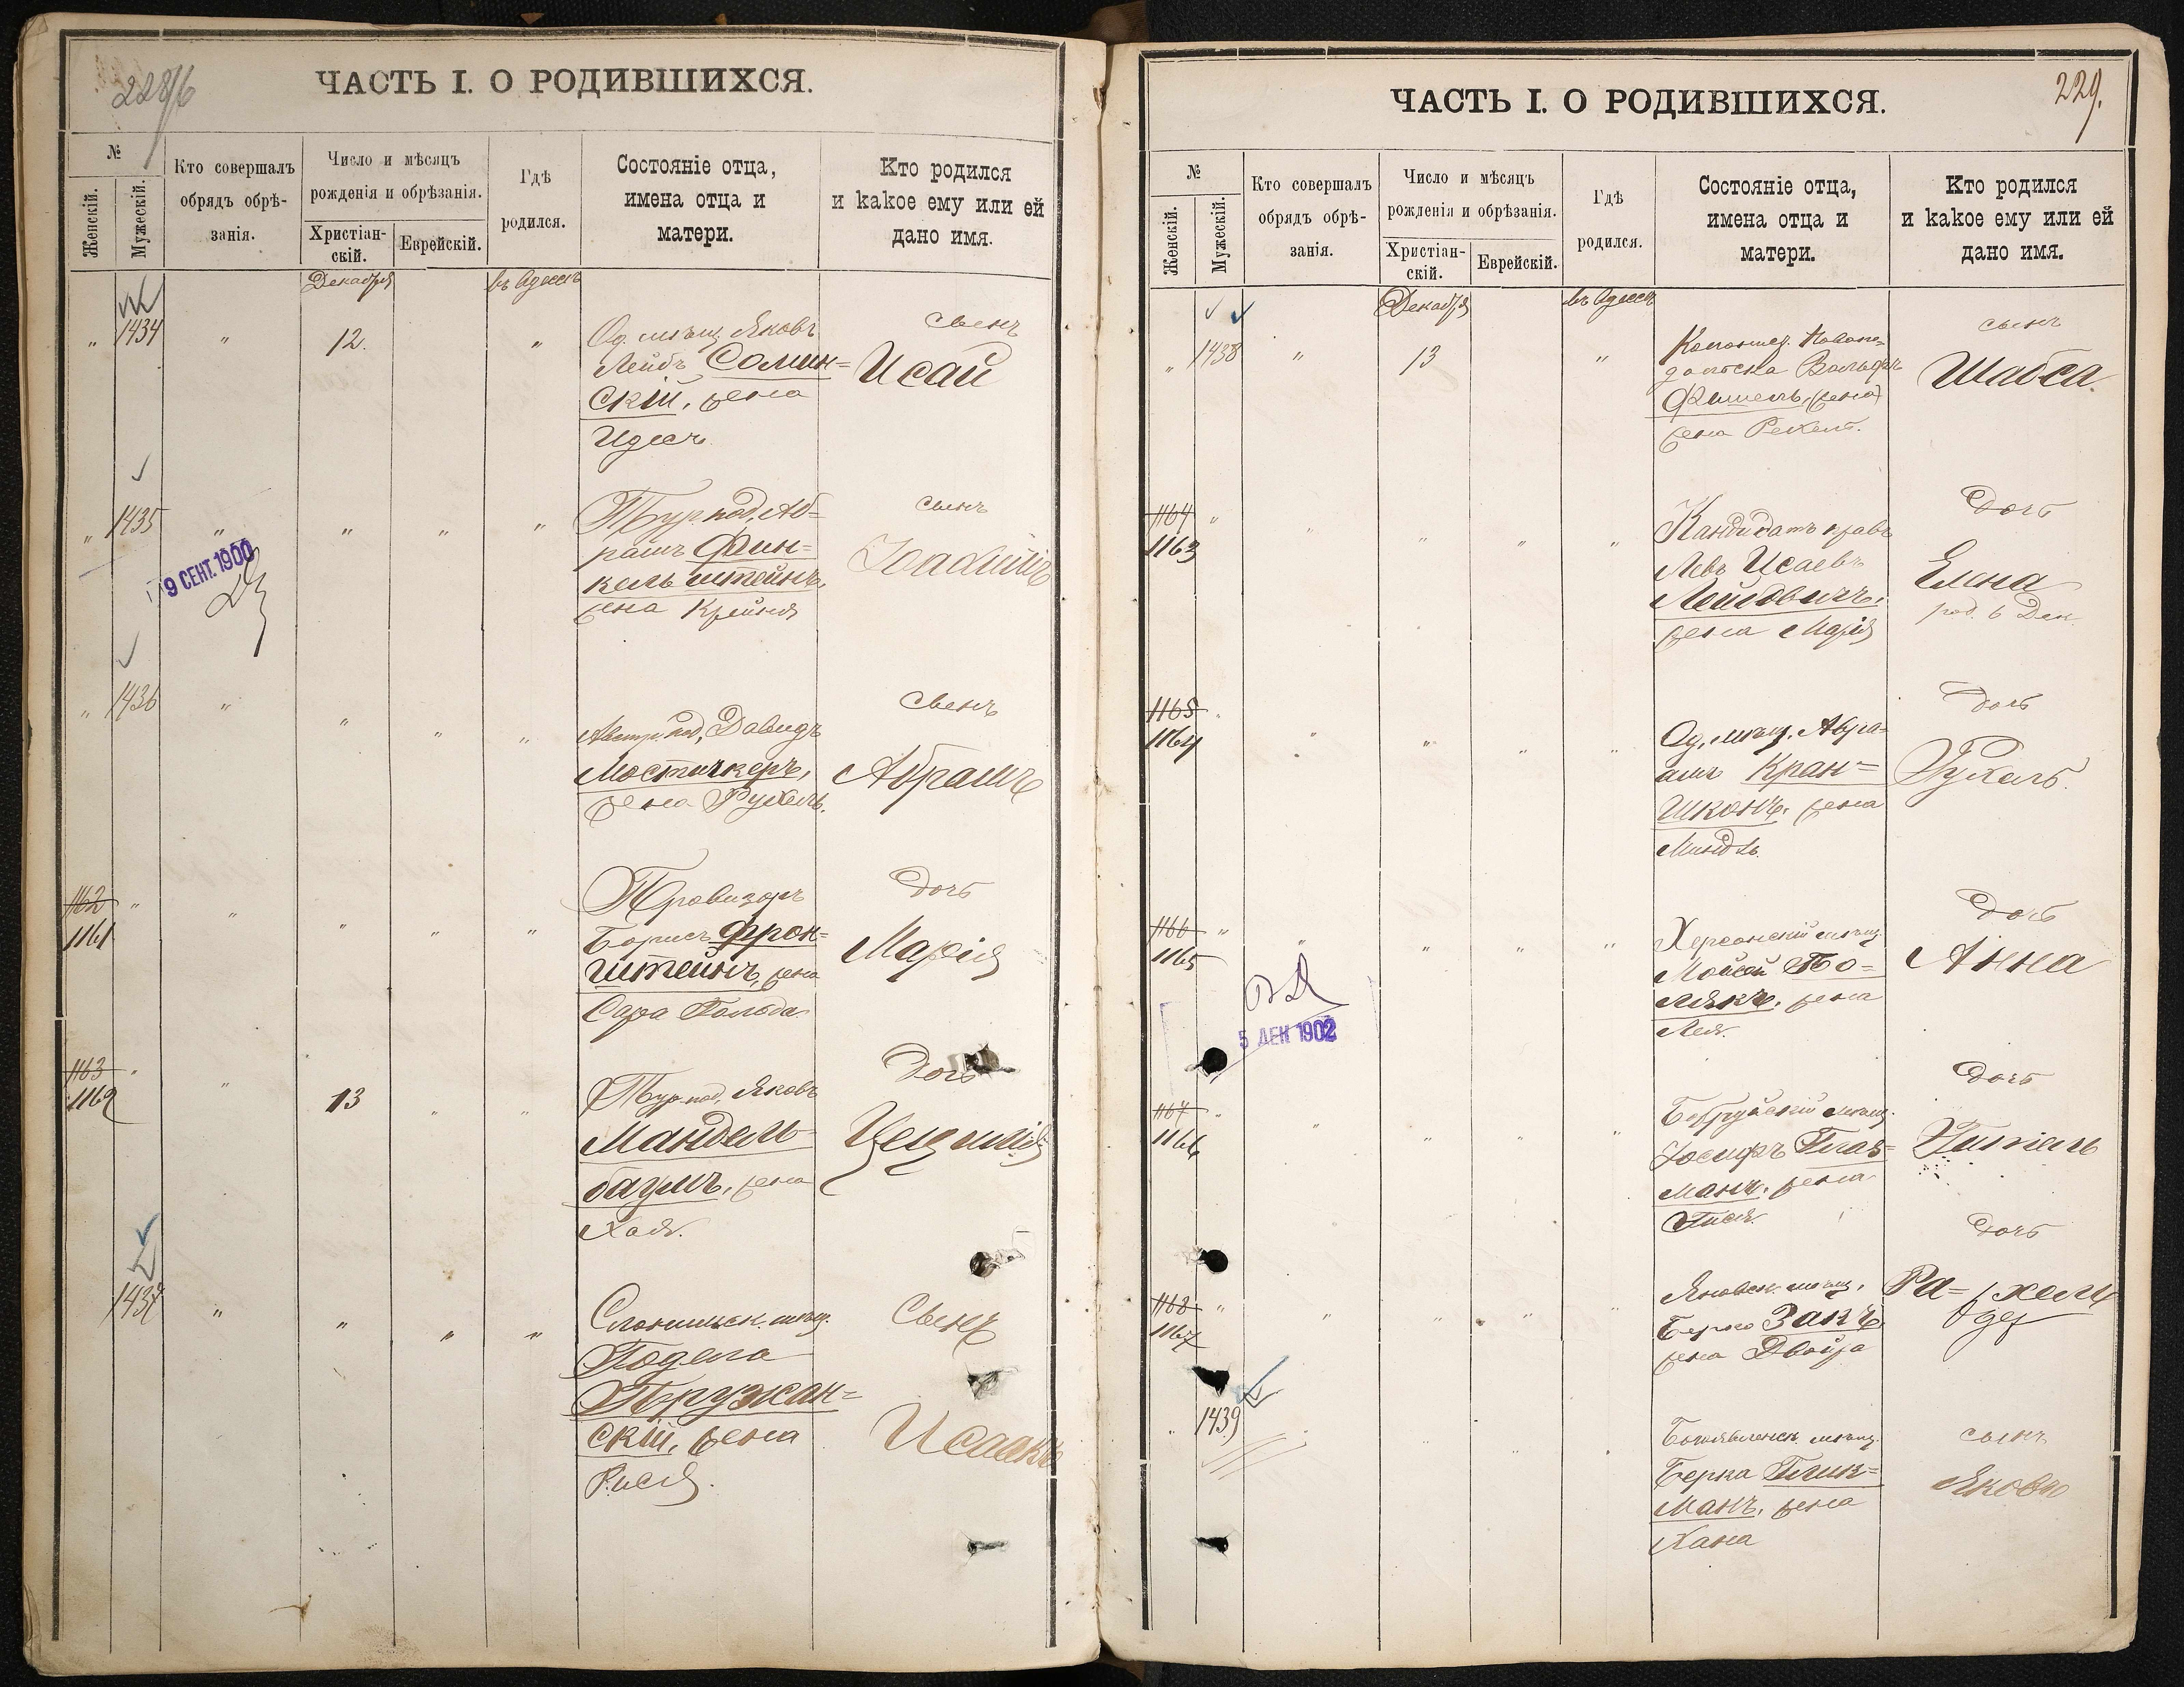 228/б
ЧАСТЬ I. О РОДИВШИХСЯ.
№
Женскій.
Мужескій.
Кто совершалъ
обрядъ обрѣ-
занія.
Число и мѣсяцъ
рожденія и обрѣзанія.
Христіан-
скій.
Еврейскій.
Гдѣ
родился.
Состояніе отца,
имена отца и
матери.
Кто родился
и какое ему или ей
дано имя.
Декабря
въ Одессѣ
" 1434 " 12. "
Од. мѣщ. Яковъ
Лейбъ Солин=
скій, жена
Идесъ.
сынъ
Исай
" 1435 " " " "
Тур. под. Аб=
рамъ Фин=
кельштейнъ,
жена Крейня
сынъ
Іоахимъ
9 СЕНТ. 1900
" 1436 " " " "
Австр. под. Давидъ
Мостичкеръ,
жена Рухель.
сынъ
Абрамъ
1162 "
1161 " " " "
Провизоръ
Борисъ Фрон=
штейнъ, жена
Сара Гольда
дочь
Марія
1163 "
1162 " 13 " "
Тур. под. Яковъ
Мандель=
баумъ, жена
Хая.
дочь
Цецилія
1437 " " " "
Слонимск. мѣщ.
Годела
Пружан=
скій, жена
Рися.
Сынъ
Исаакъ
229.
ЧАСТЬ I. О РОДИВШИХСЯ.
№
Женскій.
Мужескій.
Кто совершалъ
обрядъ обрѣ-
занія.
Число и мѣсяцъ
рожденія и обрѣзанія.
Христіан-
скій.
Еврейскій.
Гдѣ
родился.
Состояніе отца,
имена отца и
матери.
Кто родился
и какое ему или ей
дано имя.
Декабря
въ Одессѣ
" 1438 " 13 "
Вольфъ
Фишель, (жена)
жена
сынъ
Шабса.
1164 "
1163 " " " "
Кандидатъ правъ
Левъ Исаевъ
Лейбовичъ,
жена Марія
Дочь
Елена
род. 6 Дек.
1165 "
1164 " " " "
Од. мѣщ. Абра=
амъ Кран=
шконъ, жена
Миндль.
дочь
Рухель.
1166 "
1165 " " " "
Херсонскій мѣщ.
Мойсей По=
лякъ, жена
Лея.
Дочь
Анна
5 ДЕК 1902
1167 "
1166 " " " "
Бобруйскій мѣщ.
Іосифъ Глаз=
манъ, жена
Гися.
дочь
1168 "
1167 " " " "
Яновск. мѣщ.
Берко Закъ
жена Двойра
дочь
Ра= хель
1439
мѣщ.
Берка Глик=
манъ, жена
Хана
сынъ
Яковъ